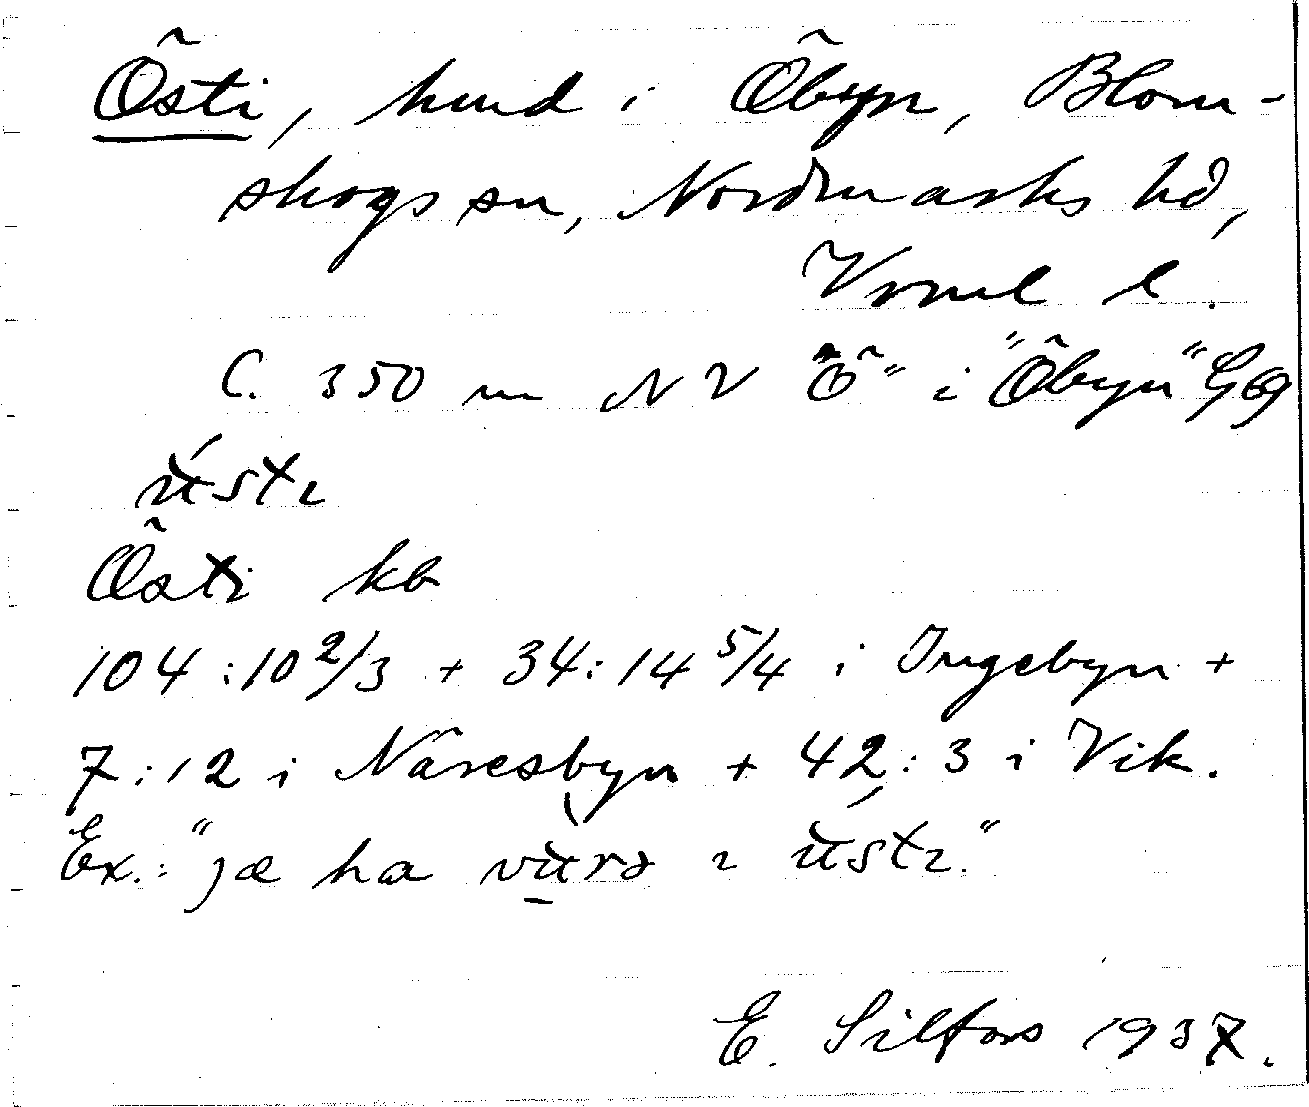 Östi, hmd i Öbyn, Blom-
skogs sn, Nordmarks hd,
Vrml l.
C. 350 m NV "Ö" i "Öbyn" G 69
Östi kb
104:10 2/3 + 34:14 5/4 i Ingebyn +
7:12 i Näresbyn + 42:3 i Vik.
Ex.: "ja ha
E. Silfors 1937.